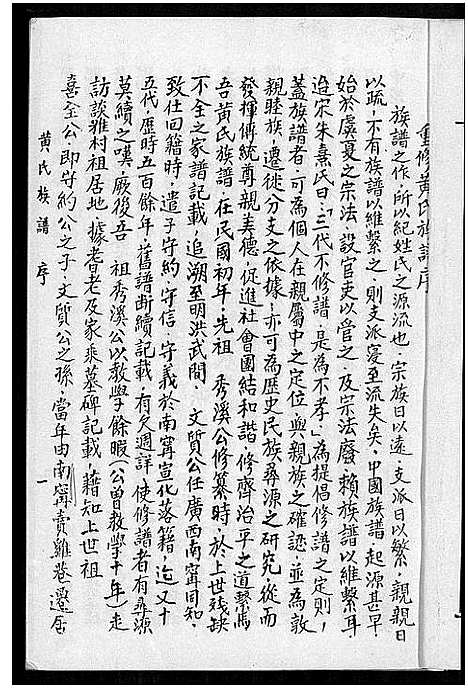 重修黃氏族譜序
族譜之作，所以紀姓氏之源流也，宗族日以遠，支派日以繁，親親日
以疏，不有族譜以維繫之，則支派寖至流失矣，中國族譜，起源甚早，
始於虞夏之宗法，設官吏以管之，及宗法廢，賴族譜以維繫耳
迨宋朱熹氏曰「三代不修譜，是為不孝」為提倡修譜之定則，
蓋族譜者，可為個人在親屬中之定位，與親族之確認，並為敦
親睦族，遷徙分支之依據，亦可為歷史民族尋源之研究，從而
發揮傳統尊親美德，促進社會團結和諧，修齊治平之道繫焉
吾黃氏族譜，在民國初年，先祖 秀溪公修纂時，於上世殘缺
不全之家譜記載，追溯至明洪武間， 文質公任廣西南甯同知，
致仕回籍時，遣子守約，守信，守義於南甯宣化落籍，迄又十
五代，歷時五百餘年，舊譜斷續記載，有欠週詳，使修譜者有尋源
莫續之嘆，厥後吾 祖秀溪公以教學餘暇（公曾教學十年）走
訪談雅村祖居地，據耆老及家乘墓碑記載，藉知上世祖
喜全公，即守約公之子，文質公之孫，當年由南甯賣雞巷遷居
黃氏族譜 序 一